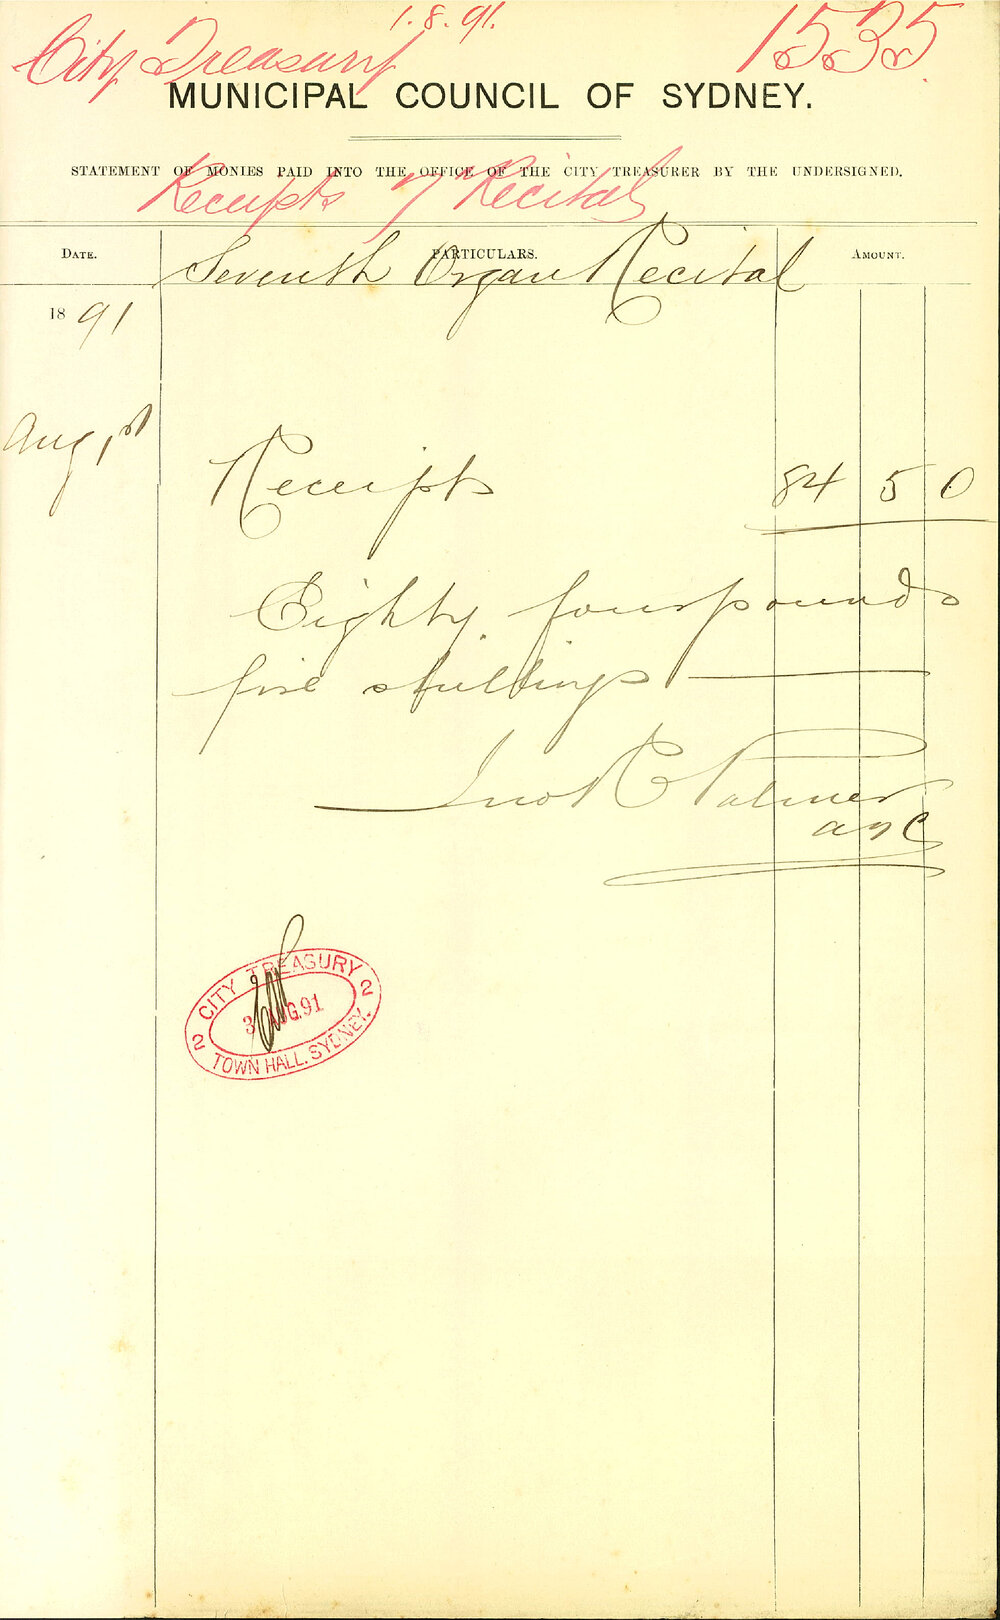 1.8.91.
1535
City Treasury
MUNICIPAL COUNCIL OF SYDNEY.
STATEMENT OF MONIES PAID INTO THE OFFICE OF THE CITY TREASURER BY THE UNDERSIGNED.
Receipts 7th Recital
DATE. PARTICULARS. AMOUNT.
Seventh Organ Recital
18 91
Aug 1st
Receipts 84 5 0
Eighty four pounds
five shillings
Jno R C Palmer
CITY TREASURY
2 2
3 AUG.91
TOWN HALL. SYDNEY.